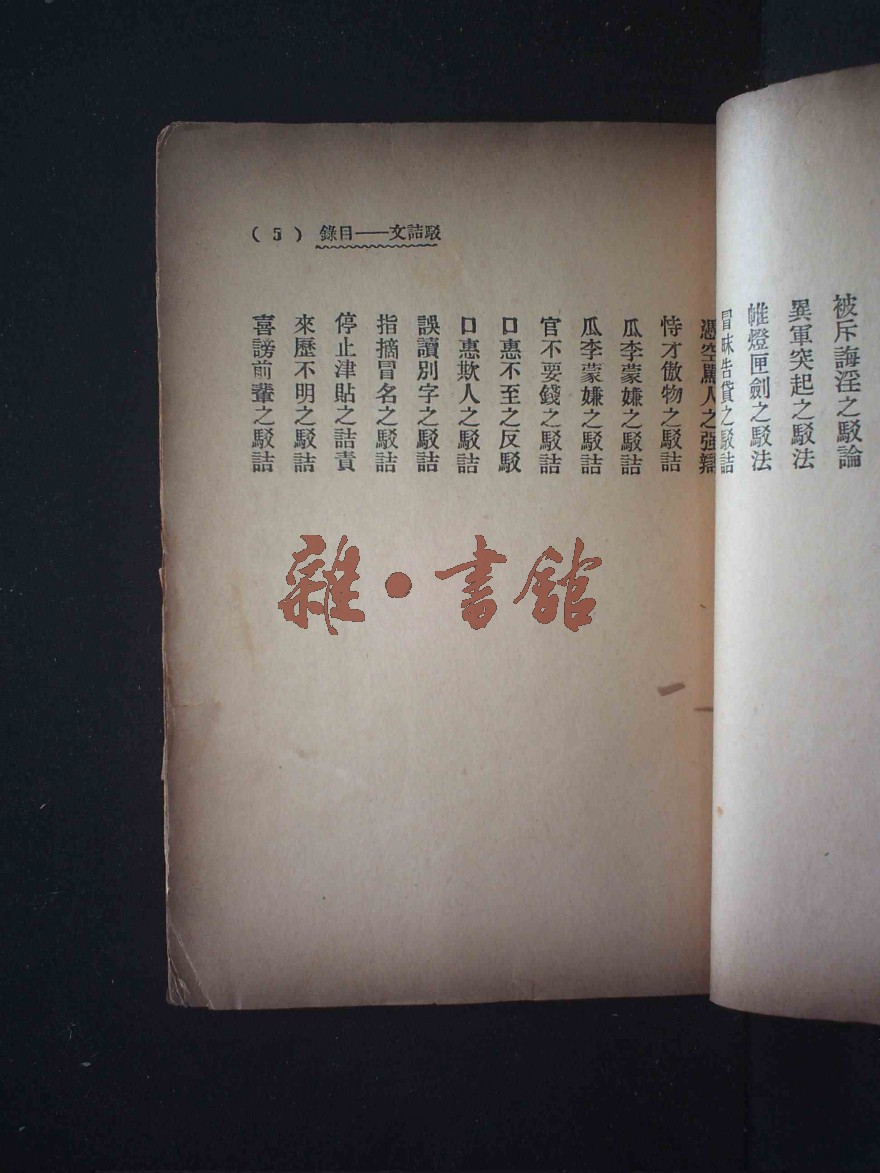 被斥誨淫之駁論
異軍突起之駁法
帷燈匣劍之駁法
冒昧告貸之駁詰
駁詰文——目錄 (5)
憑空罵人之强辯
恃才傲物之駁詰
瓜李蒙嫌之駁詰
瓜李蒙嫌之駁詰
官不要錢之駁詰
口惠不至之反駁
口惠欺人之駁詰
誤讀別字之駁詰
指摘冒名之駁詰
停止津貼之詰責
來歷不明之駁詰
喜謗前輩之駁詰
雜·書館